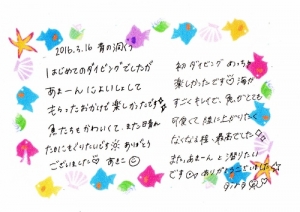 2016.3.16 青の洞くつ
はじめてのダイビングでしたが
あぁーんによいしょして
もらったおかげで楽しかったです
魚たちもかわいくて、また日晴れ
たからもぐりたいです ありがとう
ございました♡ あきこ ☺
初ダイビング めっちゃ
楽しかったです♡ 海が
すごくキレイで、魚がとても
可愛くて、陸に上がりたく
なくなる程、最高でした
また、あぁーんと潜りたい
です ありがとうございました